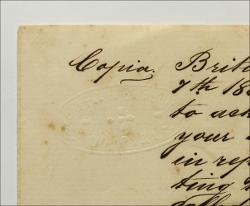 Copia. Brit
7th 18
to ack
your
in rep
ting